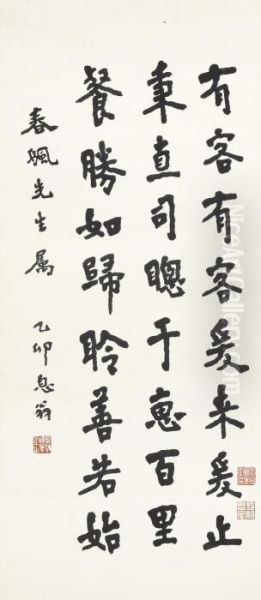 有客有客爰来爰止
秉直司聰于惠百里
餐勝如歸聆善若始
春先生属 乙卯息翁
NiceArtGallery.com